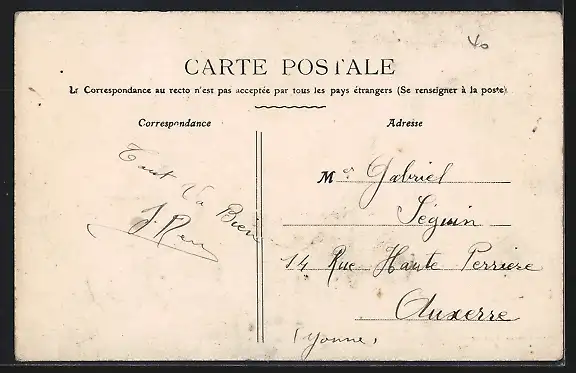 40
CARTE POSTALE
La Correspondance au recto n'est pas acceptée par tous les pays étrangers (Se renseigner à la poste)
Correspondance
Adresse
Tout Va Bien
Mer Gabriel
Séguin
14 Rue Haute Perriere
Auxerre
(Yonne)